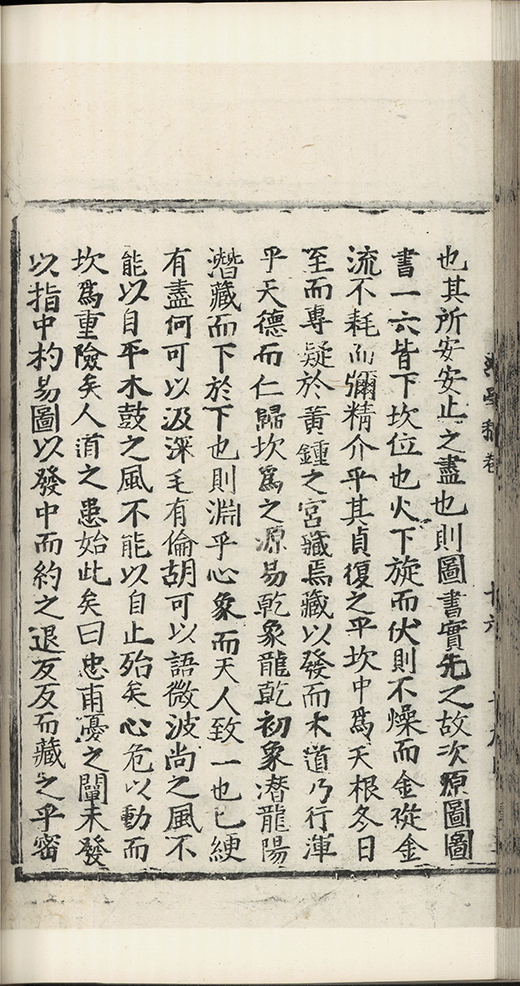 也其所安安止之盡也則圖書實先之故次原圖圖
書一六皆下坎位也火下旋而伏則不燥而金從金
流不耗而彌精介乎其貞復之乎坎中爲天根冬日
至而專疑於黄鍾之宮藏焉藏以發而木道乃行渾
乎天德而仁歸坎爲之源易乾象龍乾初象潛龍陽
潛藏而下於下也則淵乎心象而天人致一也已綆
有盡何可以汲深毛有倫胡可以語微波尚之風不
能以自平木鼓之風不能以自止殆矣心危以動而
坎爲重險矣人道之患始此矣曰忠甫憂之闡未發
以指中杓易圖以發中而約之退反反而藏之乎密
卷